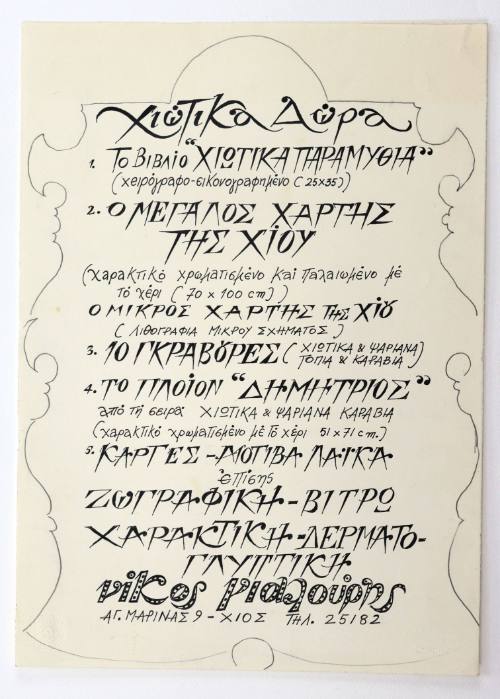 Χιώτικα Δώρα
1. Το Βιβλίο "ΧΙΩΤΙΚΑ ΠΑΡΑΜΥΘΙΑ"
(χειρόγραφο-εικονογραφημένο (25x35))
2. Ο ΜΕΓΑΛΟΣ ΧΑΡΤΗΣ
ΤΗΣ ΧΙΟΥ
(χαρακτικό χρωματισμένο και παλαιωμένο με
το χέρι (70 x 100 cm))
Ο ΜΙΚΡΟΣ ΧΑΡΤΗΣ ΤΗΣ ΧΙΟΥ
(ΛΙΘΟΓΡΑΦΙΑ ΜΙΚΡΟΥ ΣΧΗΜΑΤΟΣ)
3. 10 ΓΚΡΑΒΟΥΡΕΣ (ΧΙΩΤΙΚΑ & ΨΑΡΙΑΝΑ)
ΤΟΠΙΑ & ΚΑΡΑΒΙΑ)
4. ΤΟ ΠΛΟΙΟΝ "ΔΗΜΗΤΡΙΟΣ"
από τη σειρά ΧΙΩΤΙΚΑ & ΨΑΡΙΑΝΑ ΚΑΡΑΒΙΑ
(χαρακτικό χρωματισμένο με το χέρι 51 x 71 cm.)
5. ΚΑΡΤΕΣ - ΜΟΤΙΒΑ ΛΑΪΚΑ
επίσης
ΖΩΓΡΑΦΙΚΗ - ΒΙΤΡΩ
ΧΑΡΑΚΤΙΚΗ - ΔΕΡΜΑΤΟ-
ΓΛΥΠΤΙΚΗ
νίκος γιαλούρης
ΑΓ. ΜΑΡΙΝΑΣ 9 - ΧΙΟΣ ΤΗΛ. 25182